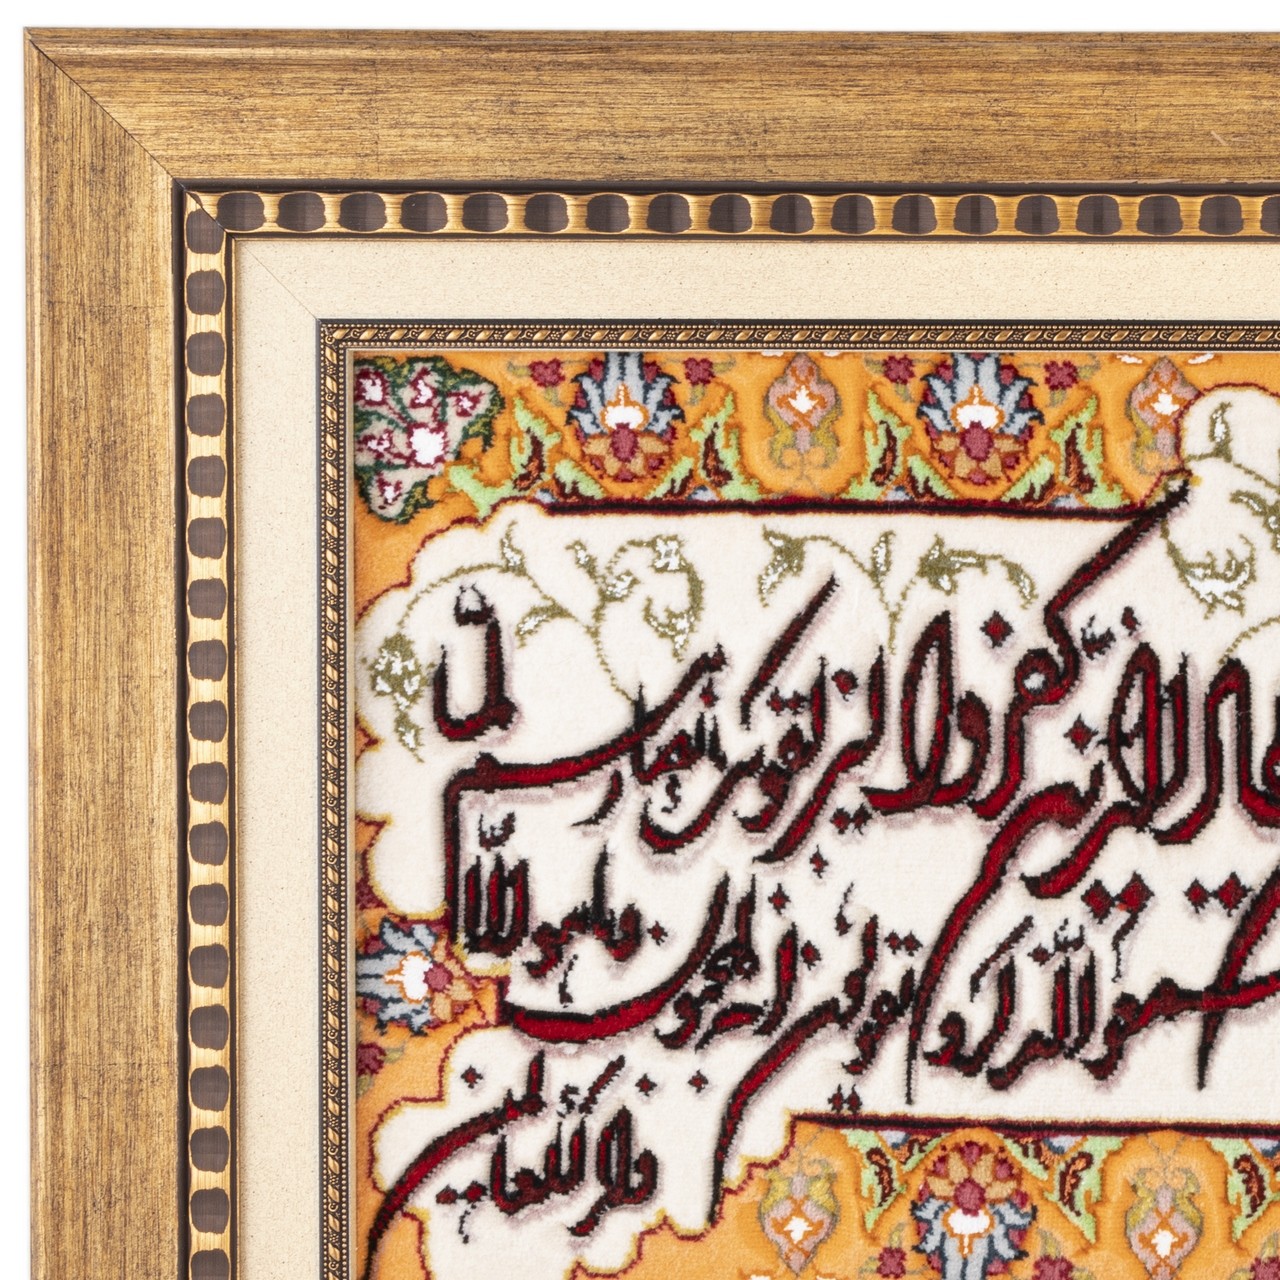 الذین کفروا لیزلقونک بابصارهم لما
سمعوا الذکر و یقولون انه لمجنون و ما هو الا
ذکر للعالمین